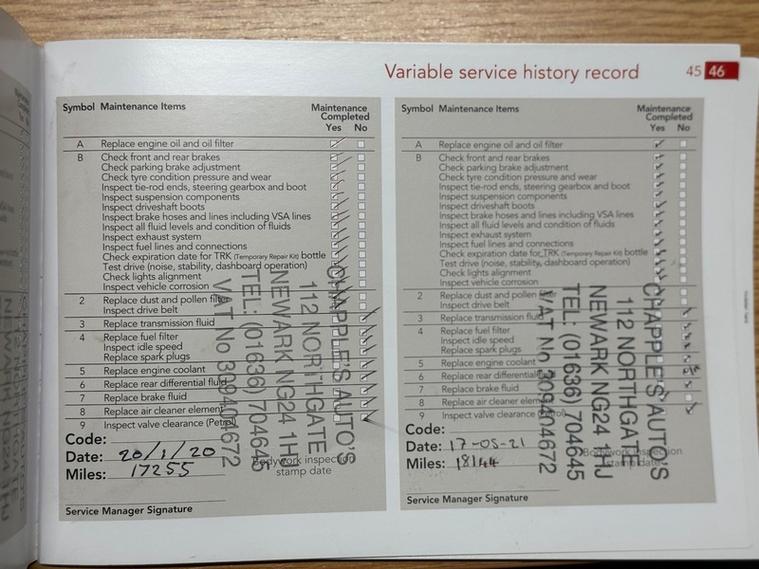 Variable service history record 45 46
Symbol Maintenance Items Maintenance Completed Yes No
A Replace engine oil and oil filter
B Check front and rear brakes
Check parking brake adjustment
Check tyre condition pressure and wear
Inspect tie-rod ends, steering gearbox and boot
Inspect suspension components
Inspect driveshaft boots
Inspect brake hoses and lines including VSA lines
Inspect all fluid levels and condition of fluids
Inspect exhaust system
Inspect fuel lines and connections
Check expiration date for TRK (Temporary Repair Kit) bottle
Test drive (noise, stability, dashboard operation)
Check lights alignment
Inspect vehicle corrosion
2 Replace dust and pollen filter
Inspect drive belt
3 Replace transmission fluid
4 Replace fuel filter
Inspect idle speed
Replace spark plugs
5 Replace engine coolant
6 Replace rear differential fluid
7 Replace brake fluid
8 Replace air cleaner element
9 Inspect valve clearance (Petrol)
Code:
Date: 20/1/20
Miles: 17255
Bodywork inspection
stamp date
Service Manager Signature
CHAPPLE'S AUTO'S
112 NORTHGATE
NEWARK NG24 1HJ
TEL: (01636) 704645
VAT No 309404672
Symbol Maintenance Items Maintenance Completed Yes No
A Replace engine oil and oil filter
B Check front and rear brakes
Check parking brake adjustment
Check tyre condition pressure and wear
Inspect tie-rod ends, steering gearbox and boot
Inspect suspension components
Inspect driveshaft boots
Inspect brake hoses and lines including VSA lines
Inspect all fluid levels and condition of fluids
Inspect exhaust system
Inspect fuel lines and connections
Check expiration date for TRK (Temporary Repair Kit) bottle
Test drive (noise, stability, dashboard operation)
Check lights alignment
Inspect vehicle corrosion
2 Replace dust and pollen filter
Inspect drive belt
3 Replace transmission fluid
4 Replace fuel filter
Inspect idle speed
Replace spark plugs
5 Replace engine coolant
6 Replace rear differential
7 Replace brake fluid
8 Replace air cleaner element
9 Inspect valve clearance (Petrol)
Code:
Date: 17-05-21
Miles: 18144
Bodywork inspection
stamp date
Service Manager Signature
CHAPPLE'S AUTO'S
112 NORTHGATE
NEWARK NG24 1HJ
TEL: (01636) 704645
VAT No 309404672